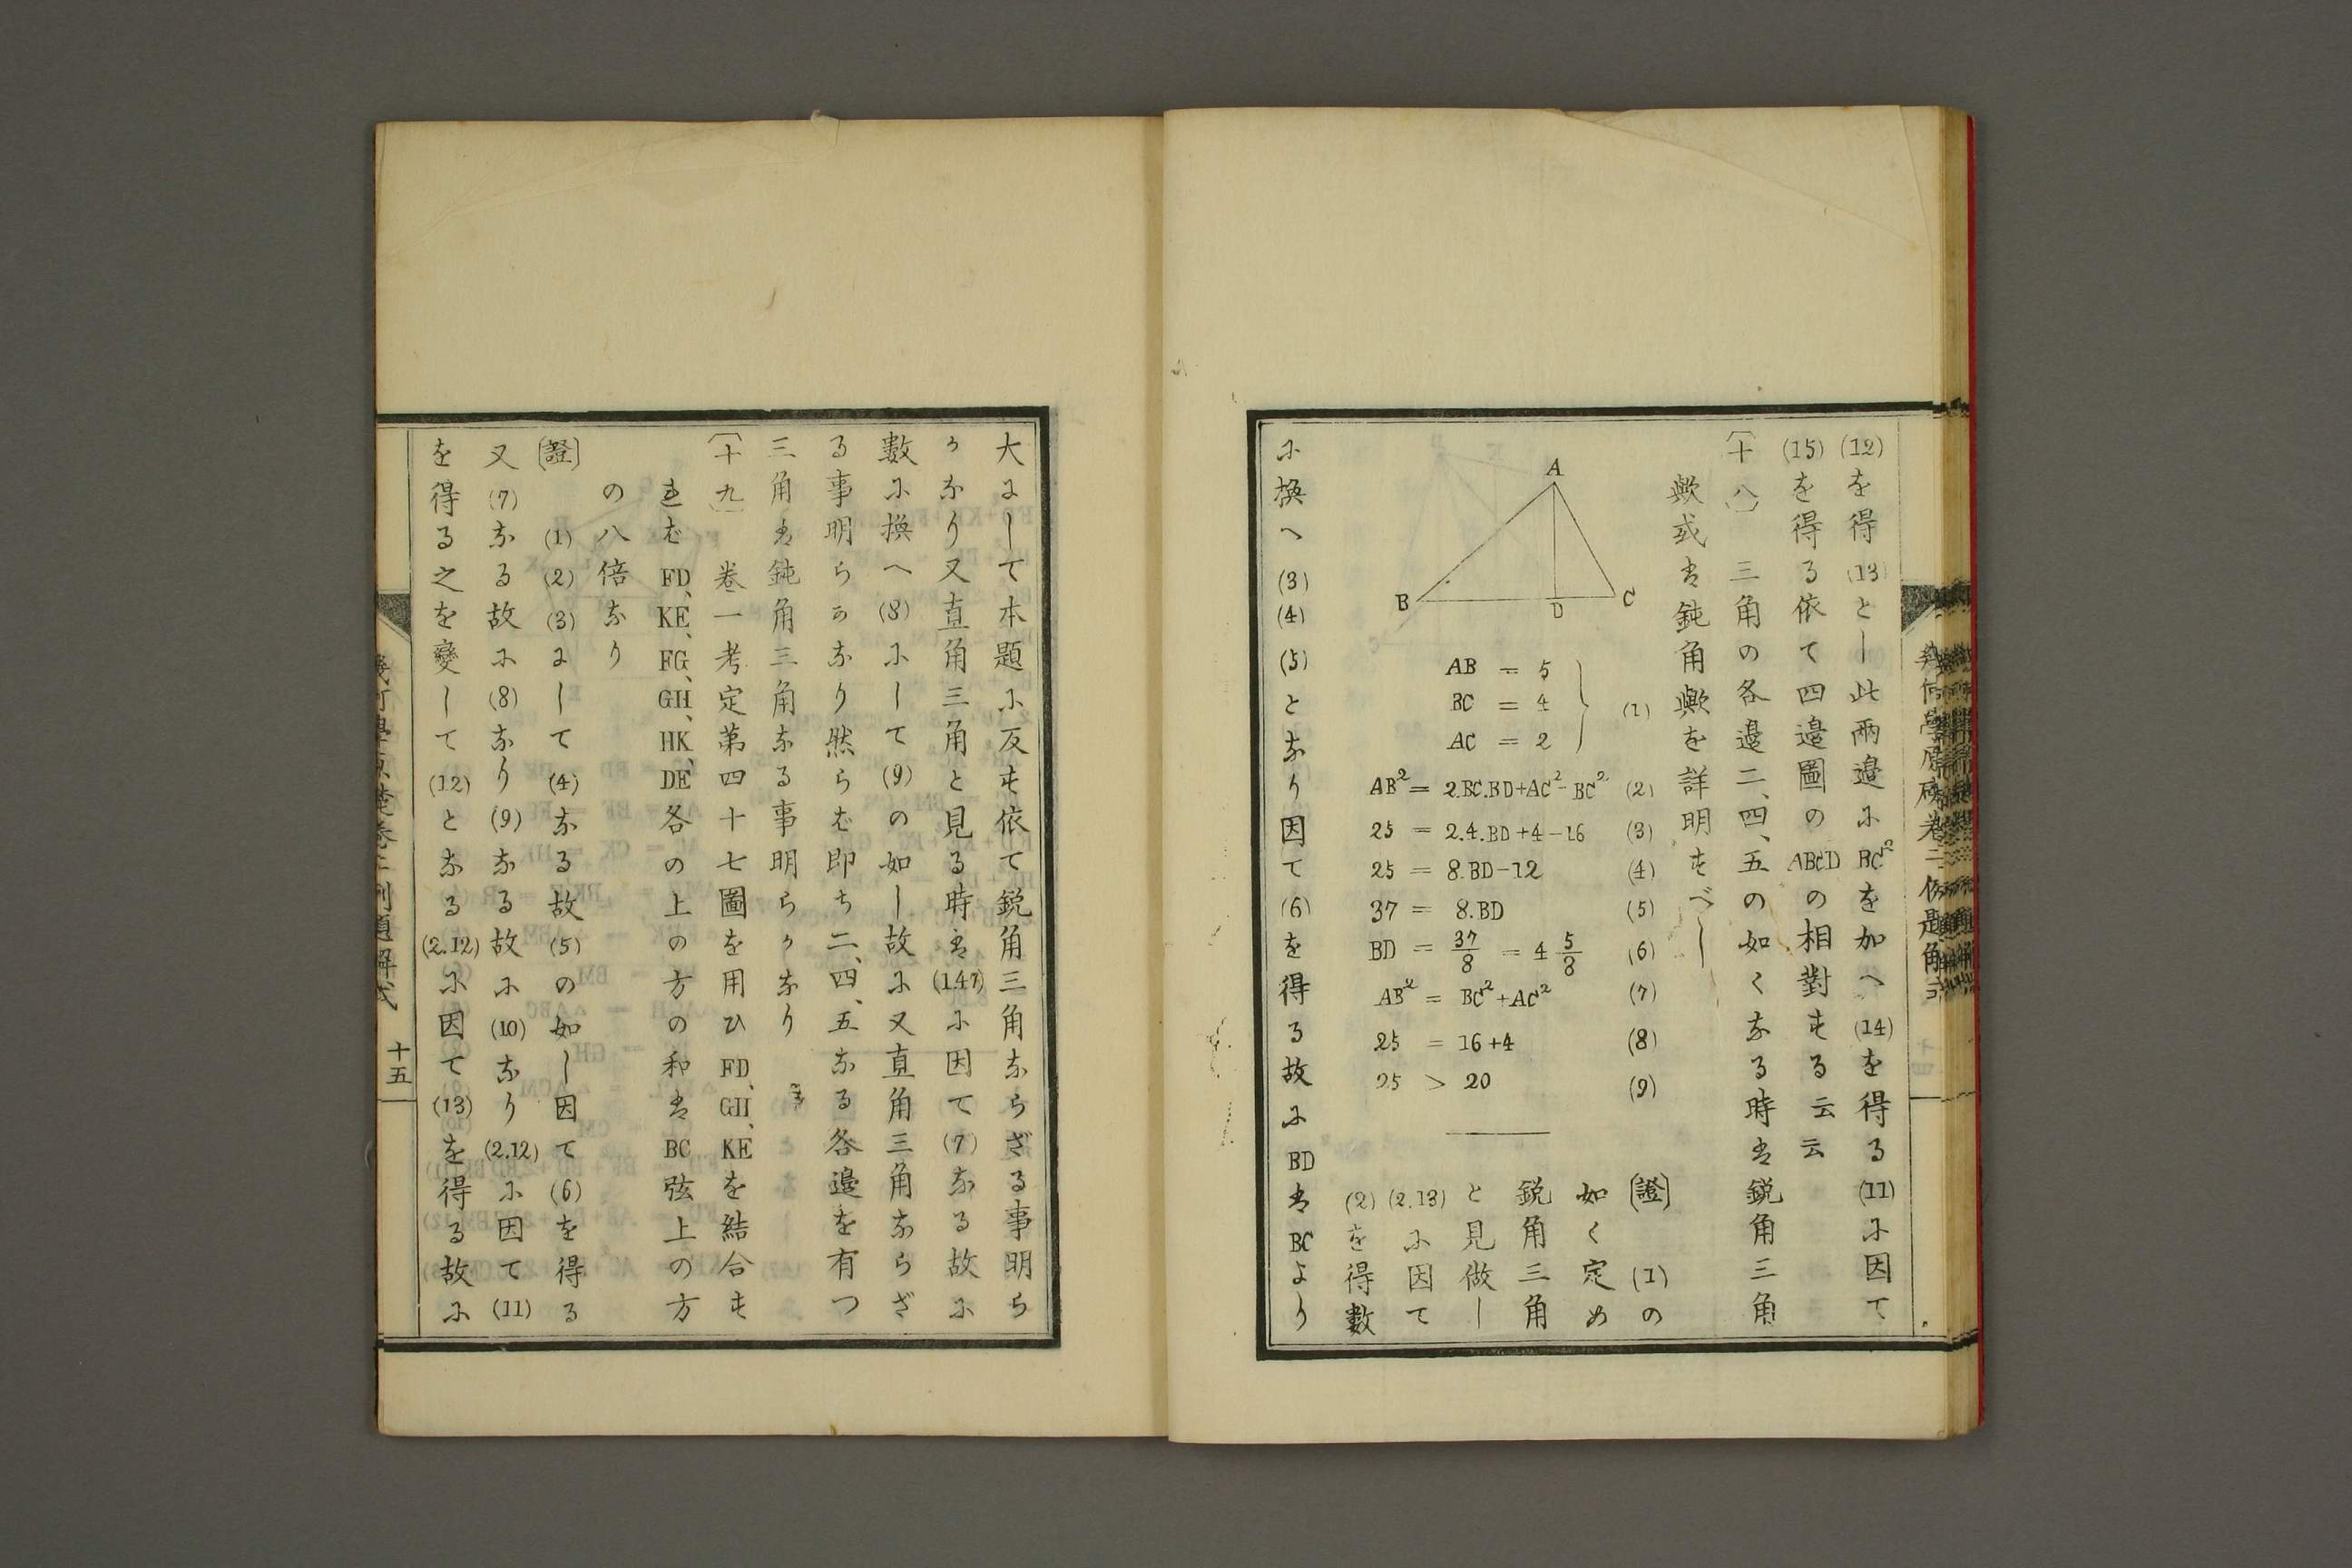 (12)を得(13)とし此兩邉にBC²を加へ(14)を得る(11)に因て
(15)を得る依て四邉圖のABCDの相對する云云
〔十八〕 三角の各邉二、四、五の如くなる時は鋭角三角
歟或は鈍角歟を詳明すべし
A
B
D
C
AB = 5
BC = 4
AC = 2
(1)
AB² = 2.BC.BD+AC²-BC² (2)
25 = 2.4.BD+4-16 (3)
25 = 8.BD-12 (4)
37 = 8.BD (5)
BD = 37/8 = 4 5/8 (6)
AB² = BC²+AC² (7)
25 = 16+4 (8)
25 > 20 (9)
〔證〕 (1)の
如く定め
鋭角三角
と見做し
(2.13)に因て
(2)を得數
に換へ(3)(4)(5)となり因て(6)を得る故にBDはBCより
大にして本題に反す依て鋭角三角ならざる事明ら
かなり又直角三角と見る時は(1.47)に因て(7)なる故に
數に換へ(8)にして(9)の如し故に又直角三角ならざ
る事明らかなり然らば即ち二、四、五なる各邉を有つ
三角は鈍角三角なる事明らかなり
〔十九〕 卷一考定第四十七圖を用ひFD、GH、KEを結合す
れば FD、KE、FG、GH、HK、DE、各の上の方の和はBC弦上の方
の八倍なり
〔證〕 (1)(2)(3)にして(4)なる故(5)の如し因て(6)を得る
又(7)なる故に(8)なり(9)なる故に(10)なり(2.12)に因て(11)
を得る之を變して(12)となる(2.12)に因て(13)を得る故に
十五